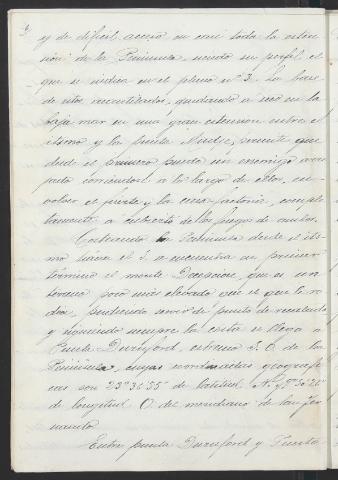 y de difícil acceso en casi toda la exten
sión de la Peninsula, siendo su perfil el
que se indica en el plano nº 3. La base
de estos acantilados, quedando á seco en la
baja mar en una gran estension entre el
istmo y la punta Mudje, permite que
desde el primero pueda un enemigo
corriendose á lo largo de ellos, en
volver el fuerte y la casa-factoria, comple
tamente á cubierto de los fuegos de ambos.
Costeando la Peninsula desde el ist
mo hacia el S. se encuentra en primer
término el monte Decepcion, que es un
terreno poco mas elevado que el que le ro
dea, pudiendo servir de punto de recalada
y siguiendo siempre la costa se llega á
Punta Durnford, estremo S. O. de la
Peninsula, cuyas coordenadas geográfi
cas son 23º 36' 55" de latitud N. y
de longitud O. del meridiano de San Fer
nando.
Entre punta Durnford y Punta